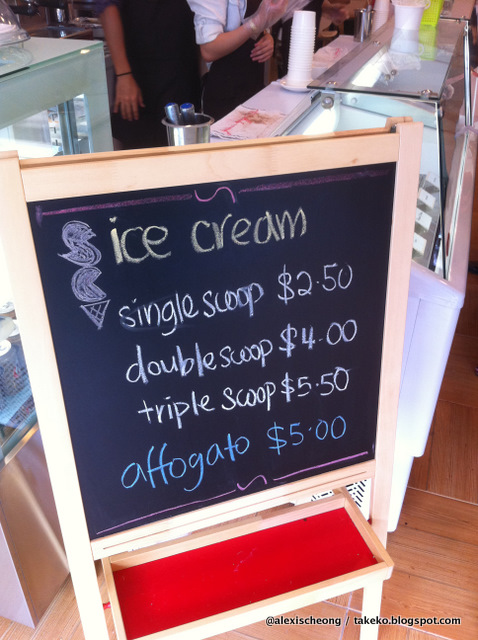 ice cream
single scoop $2.50
double scoop $4.00
triple scoop $5.50
affogato $5.00
@alexischeong / takeko.blogspot.com